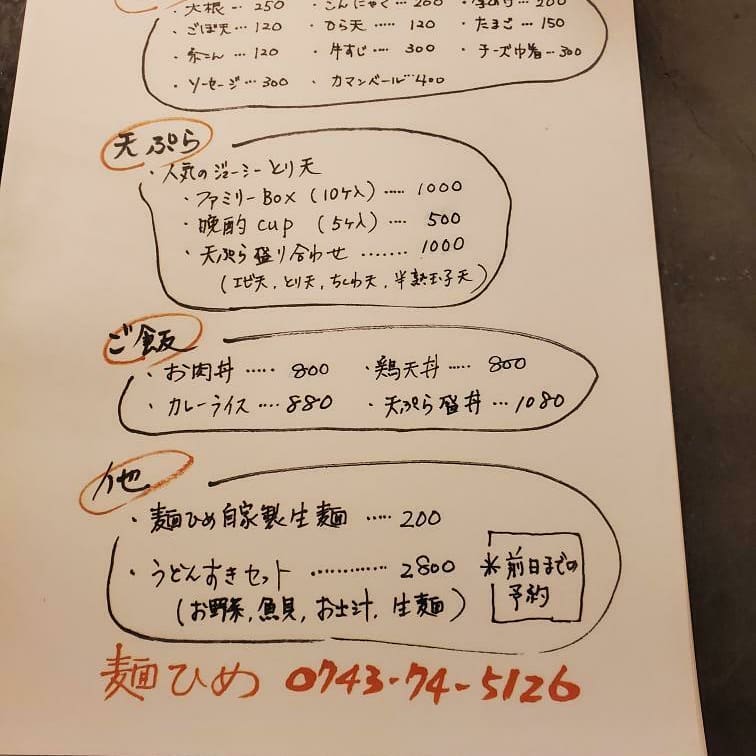 ・大根…250 ・こんにゃく…200 200
・ごぼ天…120 ・ひら天……120 ・たまご…150
・糸こん…120 ・牛すじ…300 ・チーズ巾着…300
・ソーセージ…300 ・カマンベール…400
天ぷら
・人気のジューシーとり天
・ファミリーBOX（10ケ入）……1000
・晩酌cup（5ケ入）……500
・天ぷら盛り合わせ………1000
（エビ天,とり天,ちくわ天,半熟玉子天）
ご飯
・お肉丼……800 ・鶏天丼……800
・カレーライス……880 ・天ぷら盛丼…1080
他
・麺ひめ自家製生麺……200
・うどんすきセット…………2800
（お野菜,魚貝,お士汁,生麺）
※前日までの
予約
麺ひめ 0743-74-5126